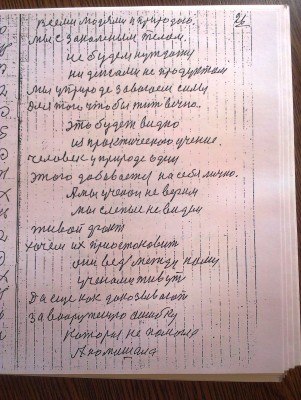 26
всеми людьми и природою.
мы с закальным телом.
не будем нуждаться
ни деньгами не продуктом
мы у природе завоюем силы
Для того чтобы жить вечно.
это будет видно
из практического учение.
человек у природе один
этого добевается на себя лично.
А мы ученои не верим
мы слепые не видим
живой факт
хочем их приостоновит
они вед между нами
учеными живут
Да еще как доказывают
за вооруженую ошибку
которая не помогла
А помешала